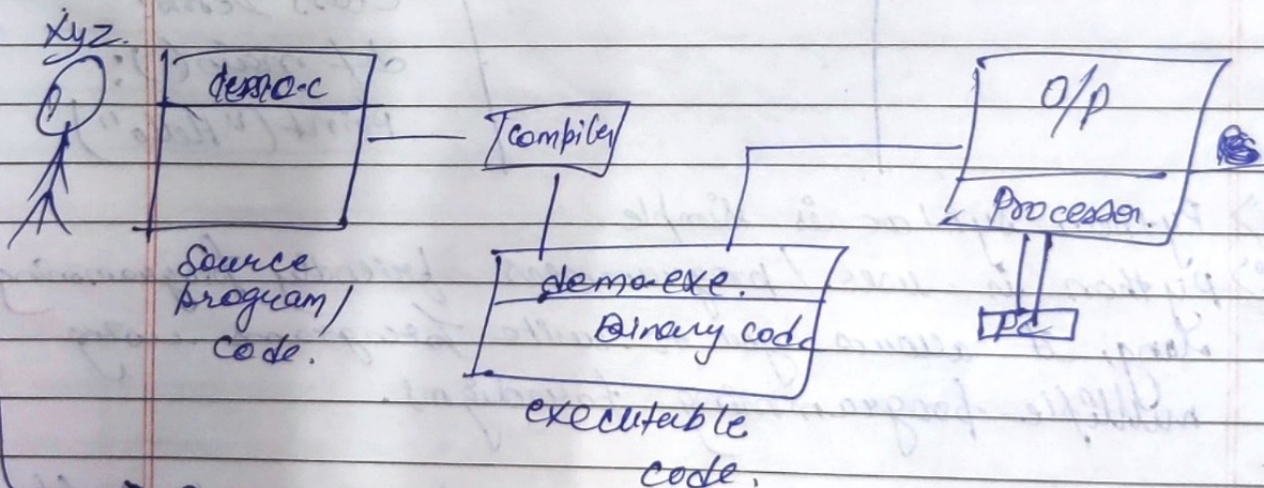 xyz.
demo.c
Source
program/
code.
compiler
demo.exe.
Binary code
executable
code.
O/P
Processor.
PC